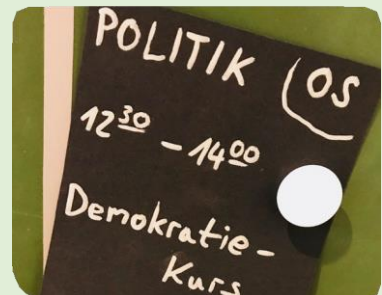 POLITIK (OS
12³⁰ – 14⁰⁰
Demokratie-
Kurs